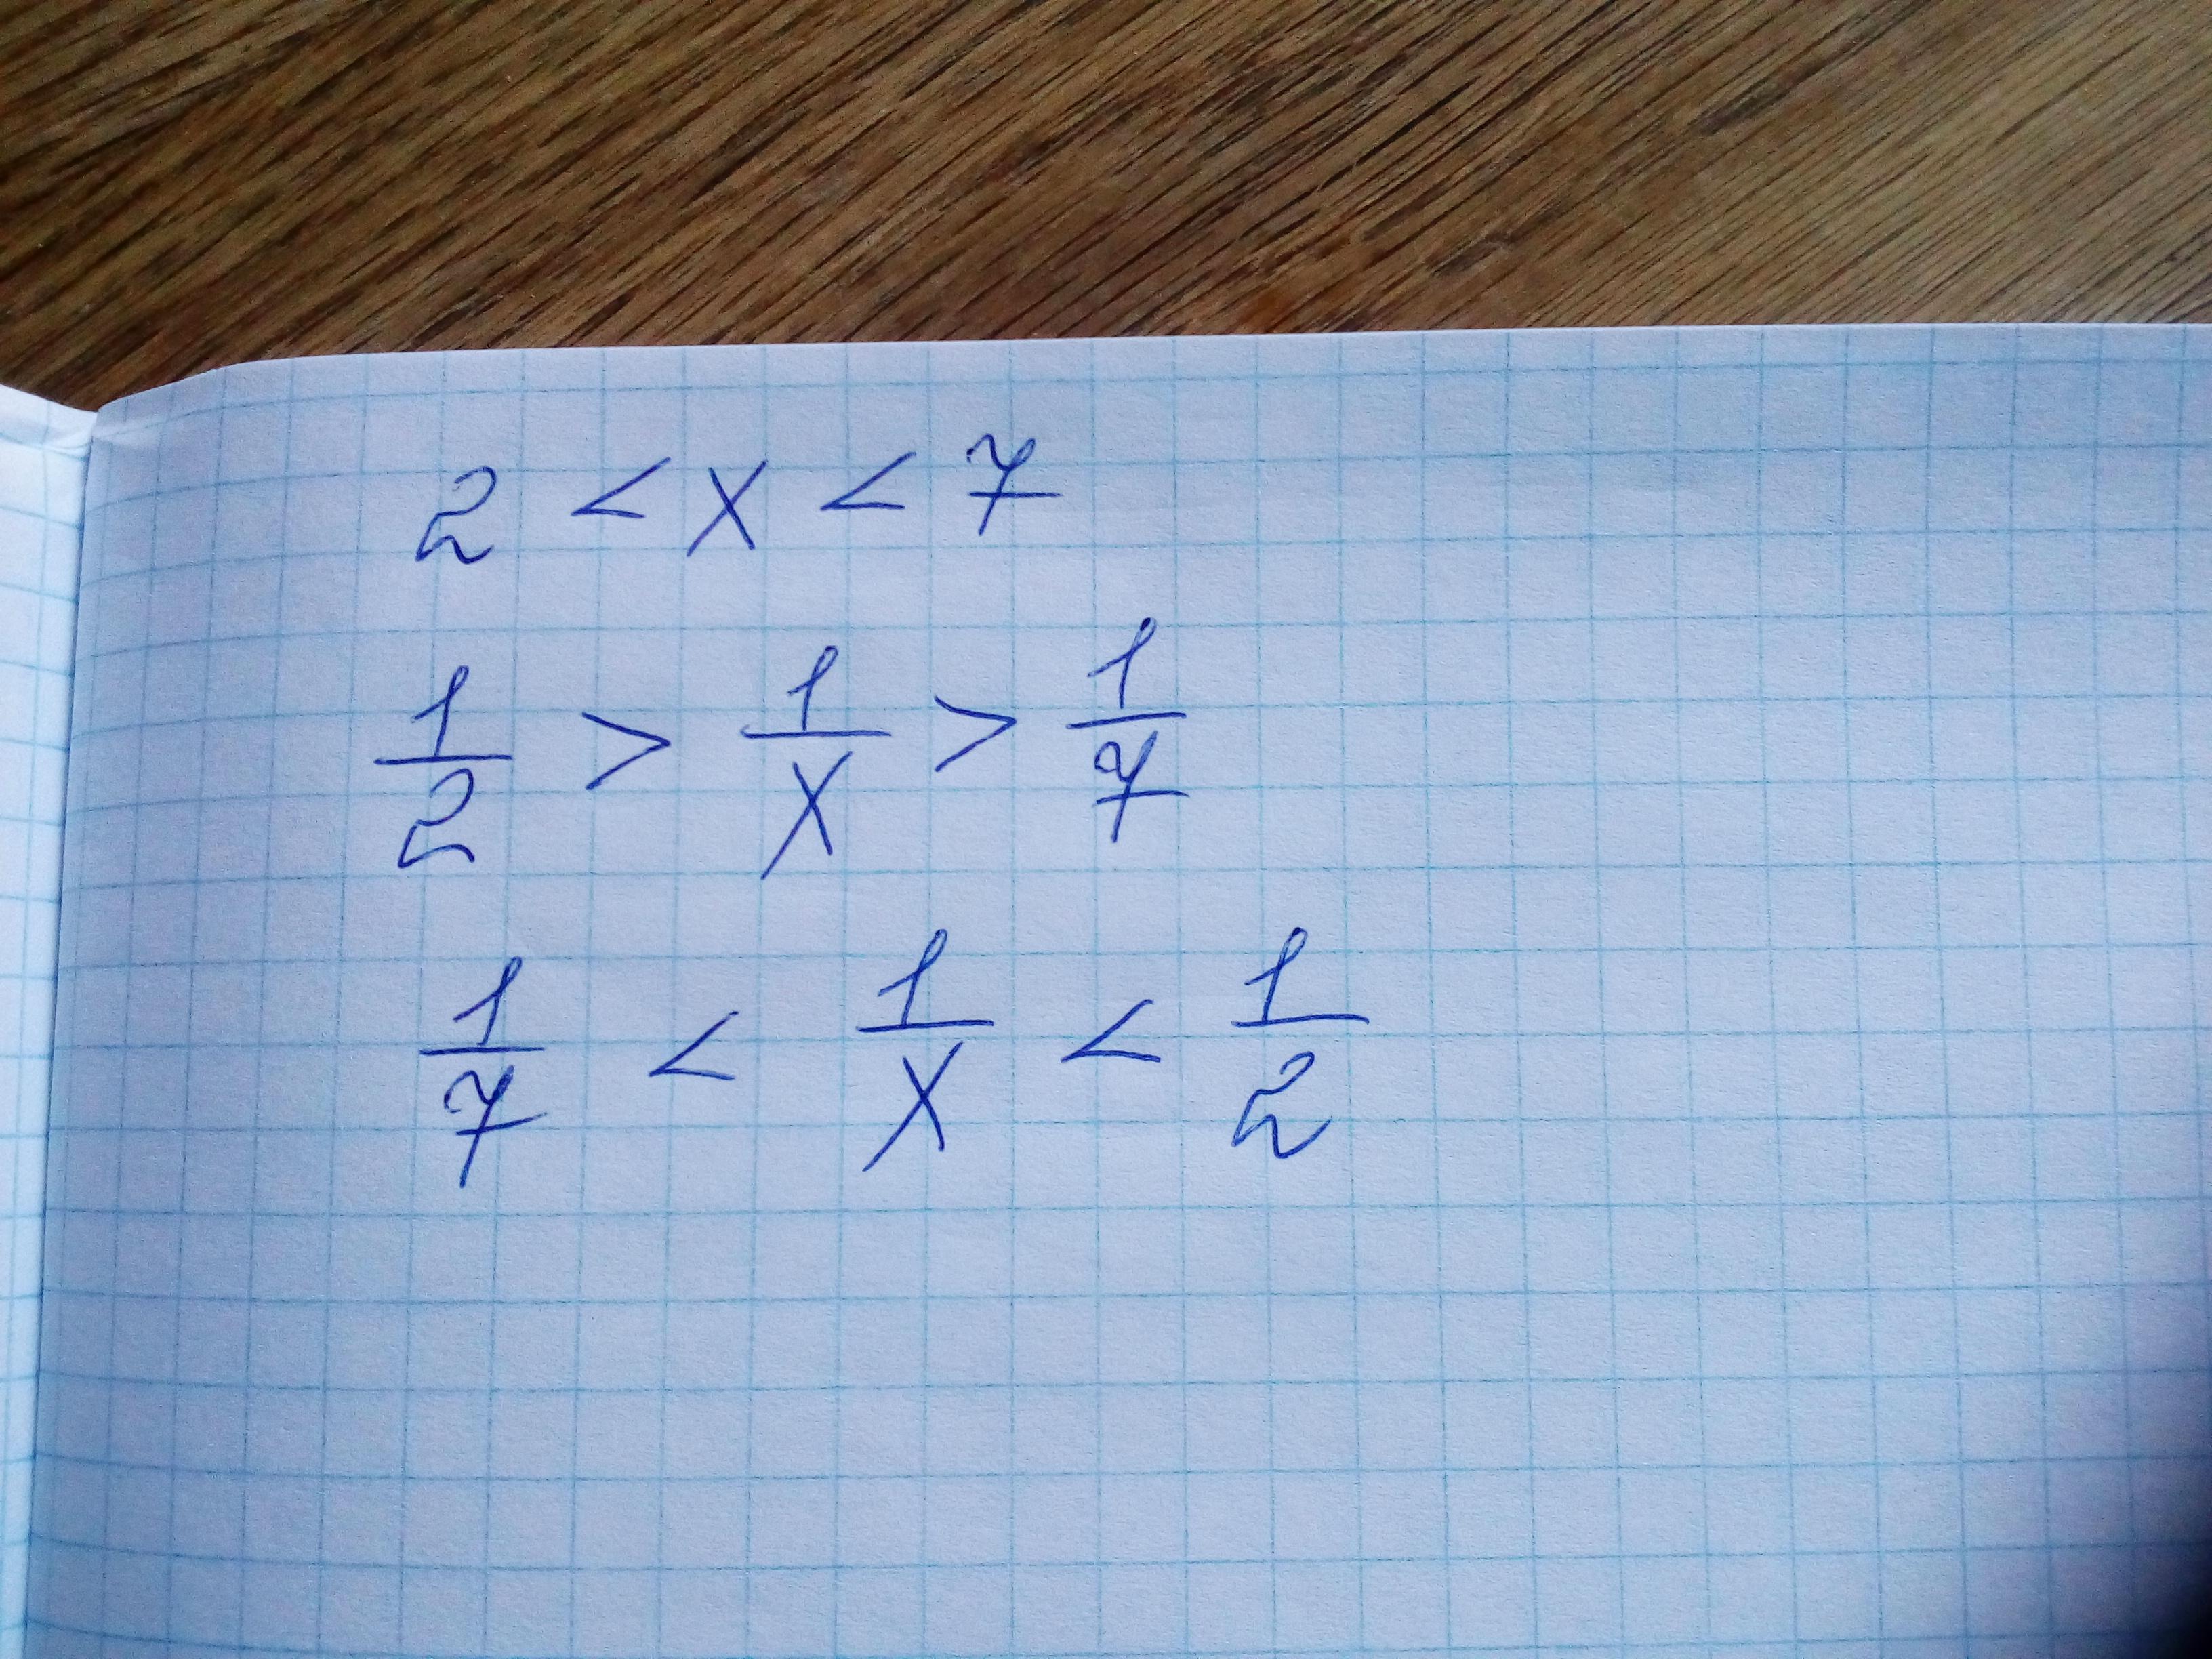 2 < x < 7
1/2 > 1/x > 1/7
1/7 < 1/x < 1/2